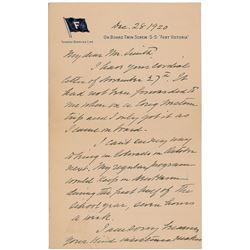 F
Furness Bermuda Line
Dec. 28 1920
On Board Twin Screw S·S "Fort Victoria"
My dear Mr. Smith:
I have your cordial
letter of November 27th. It
had not been forwarded to
me when on a long
trip and I only got it as
I came on board.
I can't see any way
to bring in Colorado in
My regular program
would keep in
during the first half of the
school year, seven hours
a week.
I am sorry because
your kind